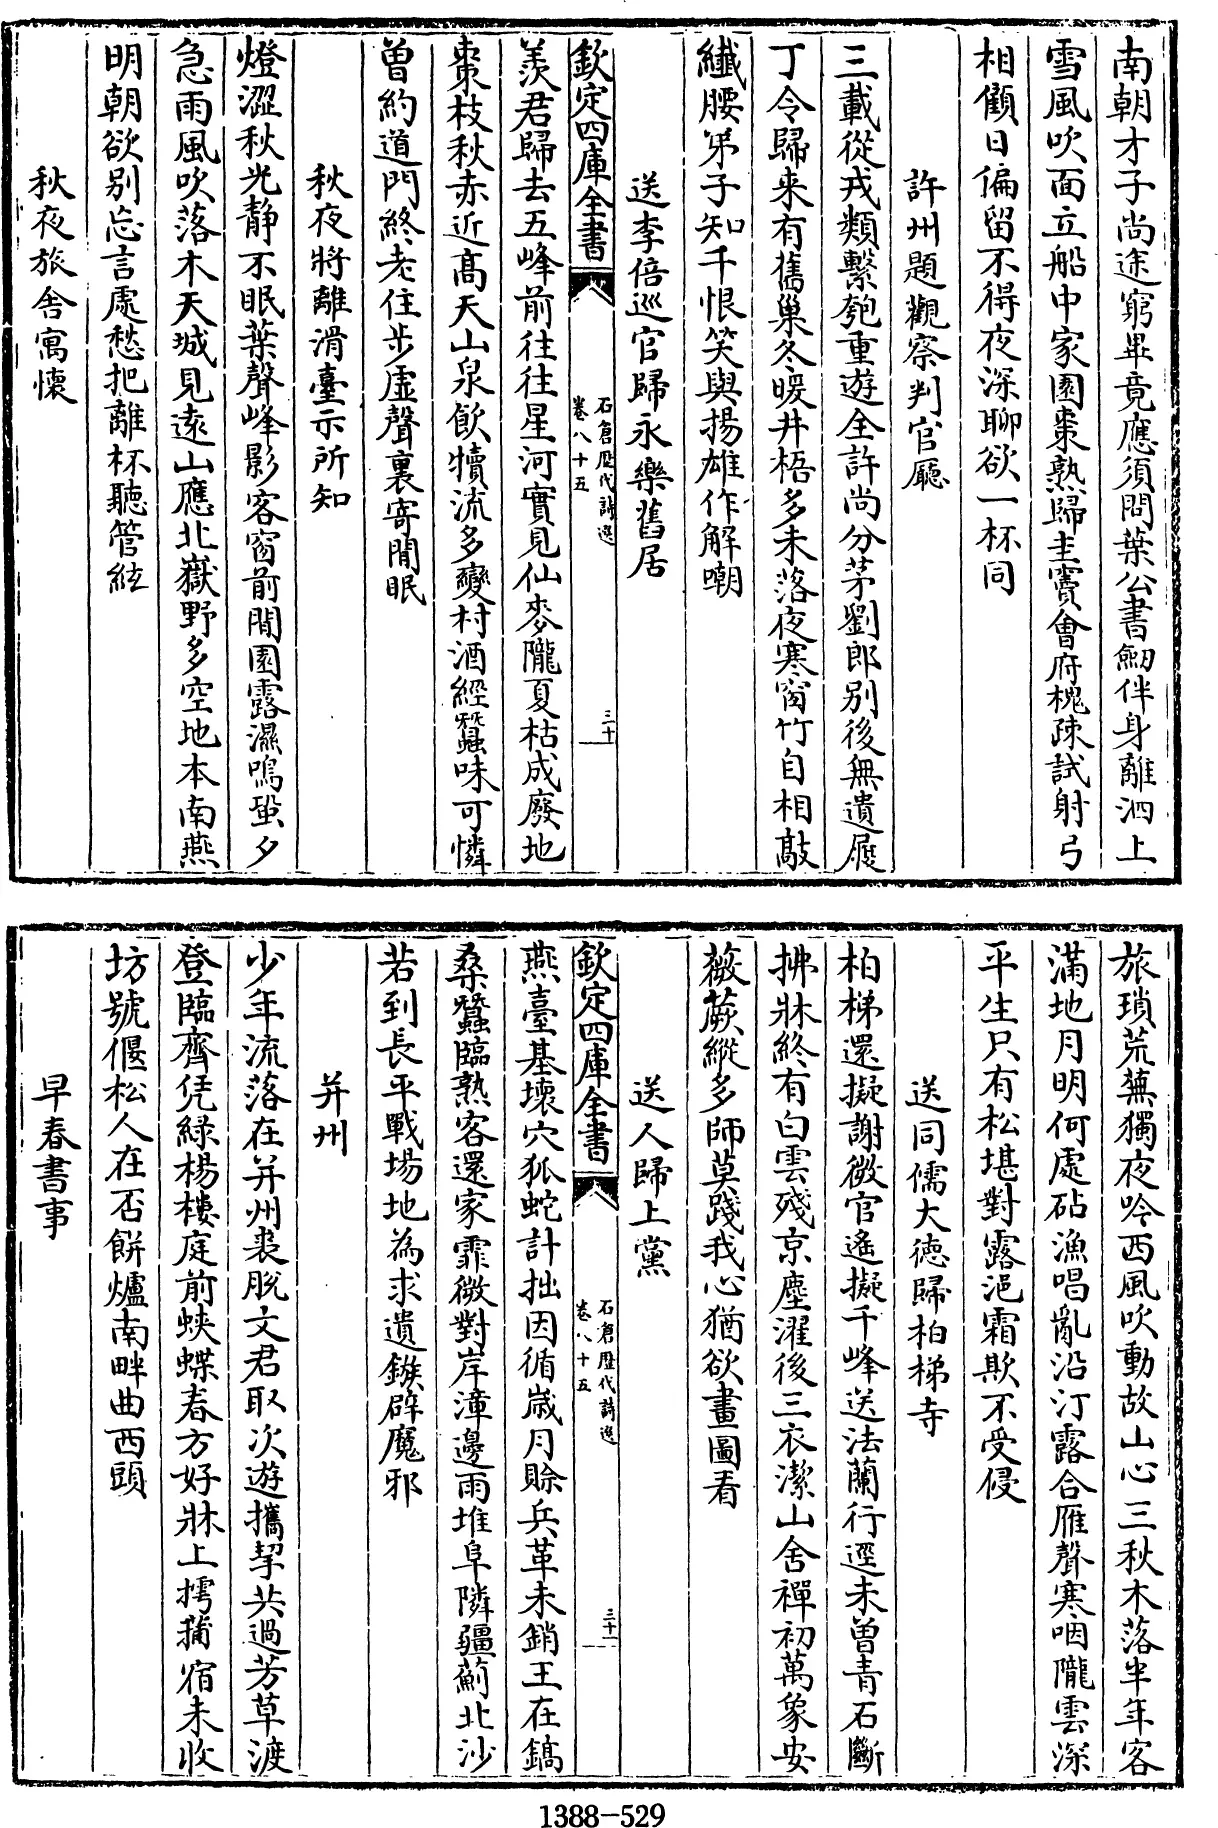 南朝才子尚途窮畢竟應須問葉公書劒伴身離泗上
雪風吹面立船中家園棗熟歸圭竇會府槐疎試射弓
相顧日偏留不得夜深聊欲一杯同
許州題觀察判官廳
三載從戎類繫匏重遊全許尚分茅劉郎别後無遺履
丁令歸来有舊巢冬暖井梧多未落夜寒窗竹自相敲
纎腰弟子知千恨笑與揚雄作解嘲
送李倍巡官歸永樂舊居
欽定四庫全書
石倉歷代詩選
卷八十五
三十
羡君歸去五峰前往往星河實見仙麥隴夏枯成廢地
棗枝秋赤近髙天山泉飲犢流多變村酒經蠶味可憐
曽約道門終老住步虚聲裏寄閒眠
秋夜將離滑臺示所知
燈澀秋光静不眠葉聲峰影客窗前閒園露濕鳴蛩夕
急雨風吹落木天城見逺山應北嶽野多空地本南燕
明朝欲别忘言處愁把離杯聽管絃
秋夜旅舍寓懷
旅瑣荒蕪獨夜吟西風吹動故山心三秋木落半年客
滿地月明何處砧漁唱亂沿汀露合雁聲寒咽隴雲深
平生只有松堪對露浥霜欺不受侵
送同儒大徳歸柏梯寺
柏梯還擬謝微官遙擬千峰送法蘭行逕未曽青石斷
拂牀終有白雲殘京塵濯後三衣潔山舍禪初萬象安
薇蕨縱多師莫踐我心猶欲畫圖看
送人歸上黨
欽定四庫全書
石倉歷代詩選
卷八十五
三十一
燕臺基壞穴狐蛇計拙因循歲月賒兵革未銷王在鎬
桑蠶臨熟客還家霏微對岸漳邊雨堆阜隣疆薊北沙
若到長平戰場地為求遺鏃辟魔邪
并州
少年流落在并州裘脱文君取次遊攜挈共過芳草渡
登臨齊凭緑楊樓庭前蛺蝶春方好牀上摴蒱宿未收
坊號偃松人在否餅爐南畔曲西頭
早春書事
1388-529